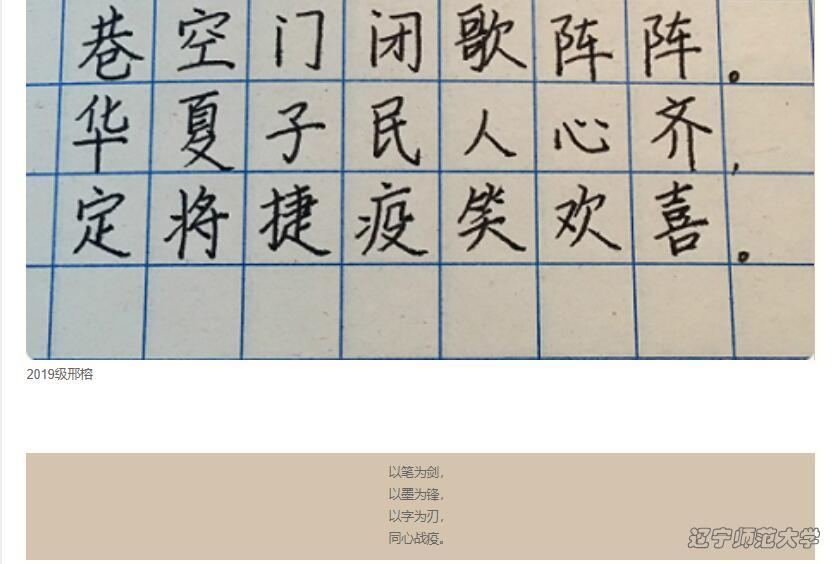 巷空门闭歌阵阵。
华夏子民人心齐,
定将捷疫笑欢喜。
2019级邢榕
以笔为剑,
以墨为锋,
以字为刃,
同心战疫。
辽宁师范大学